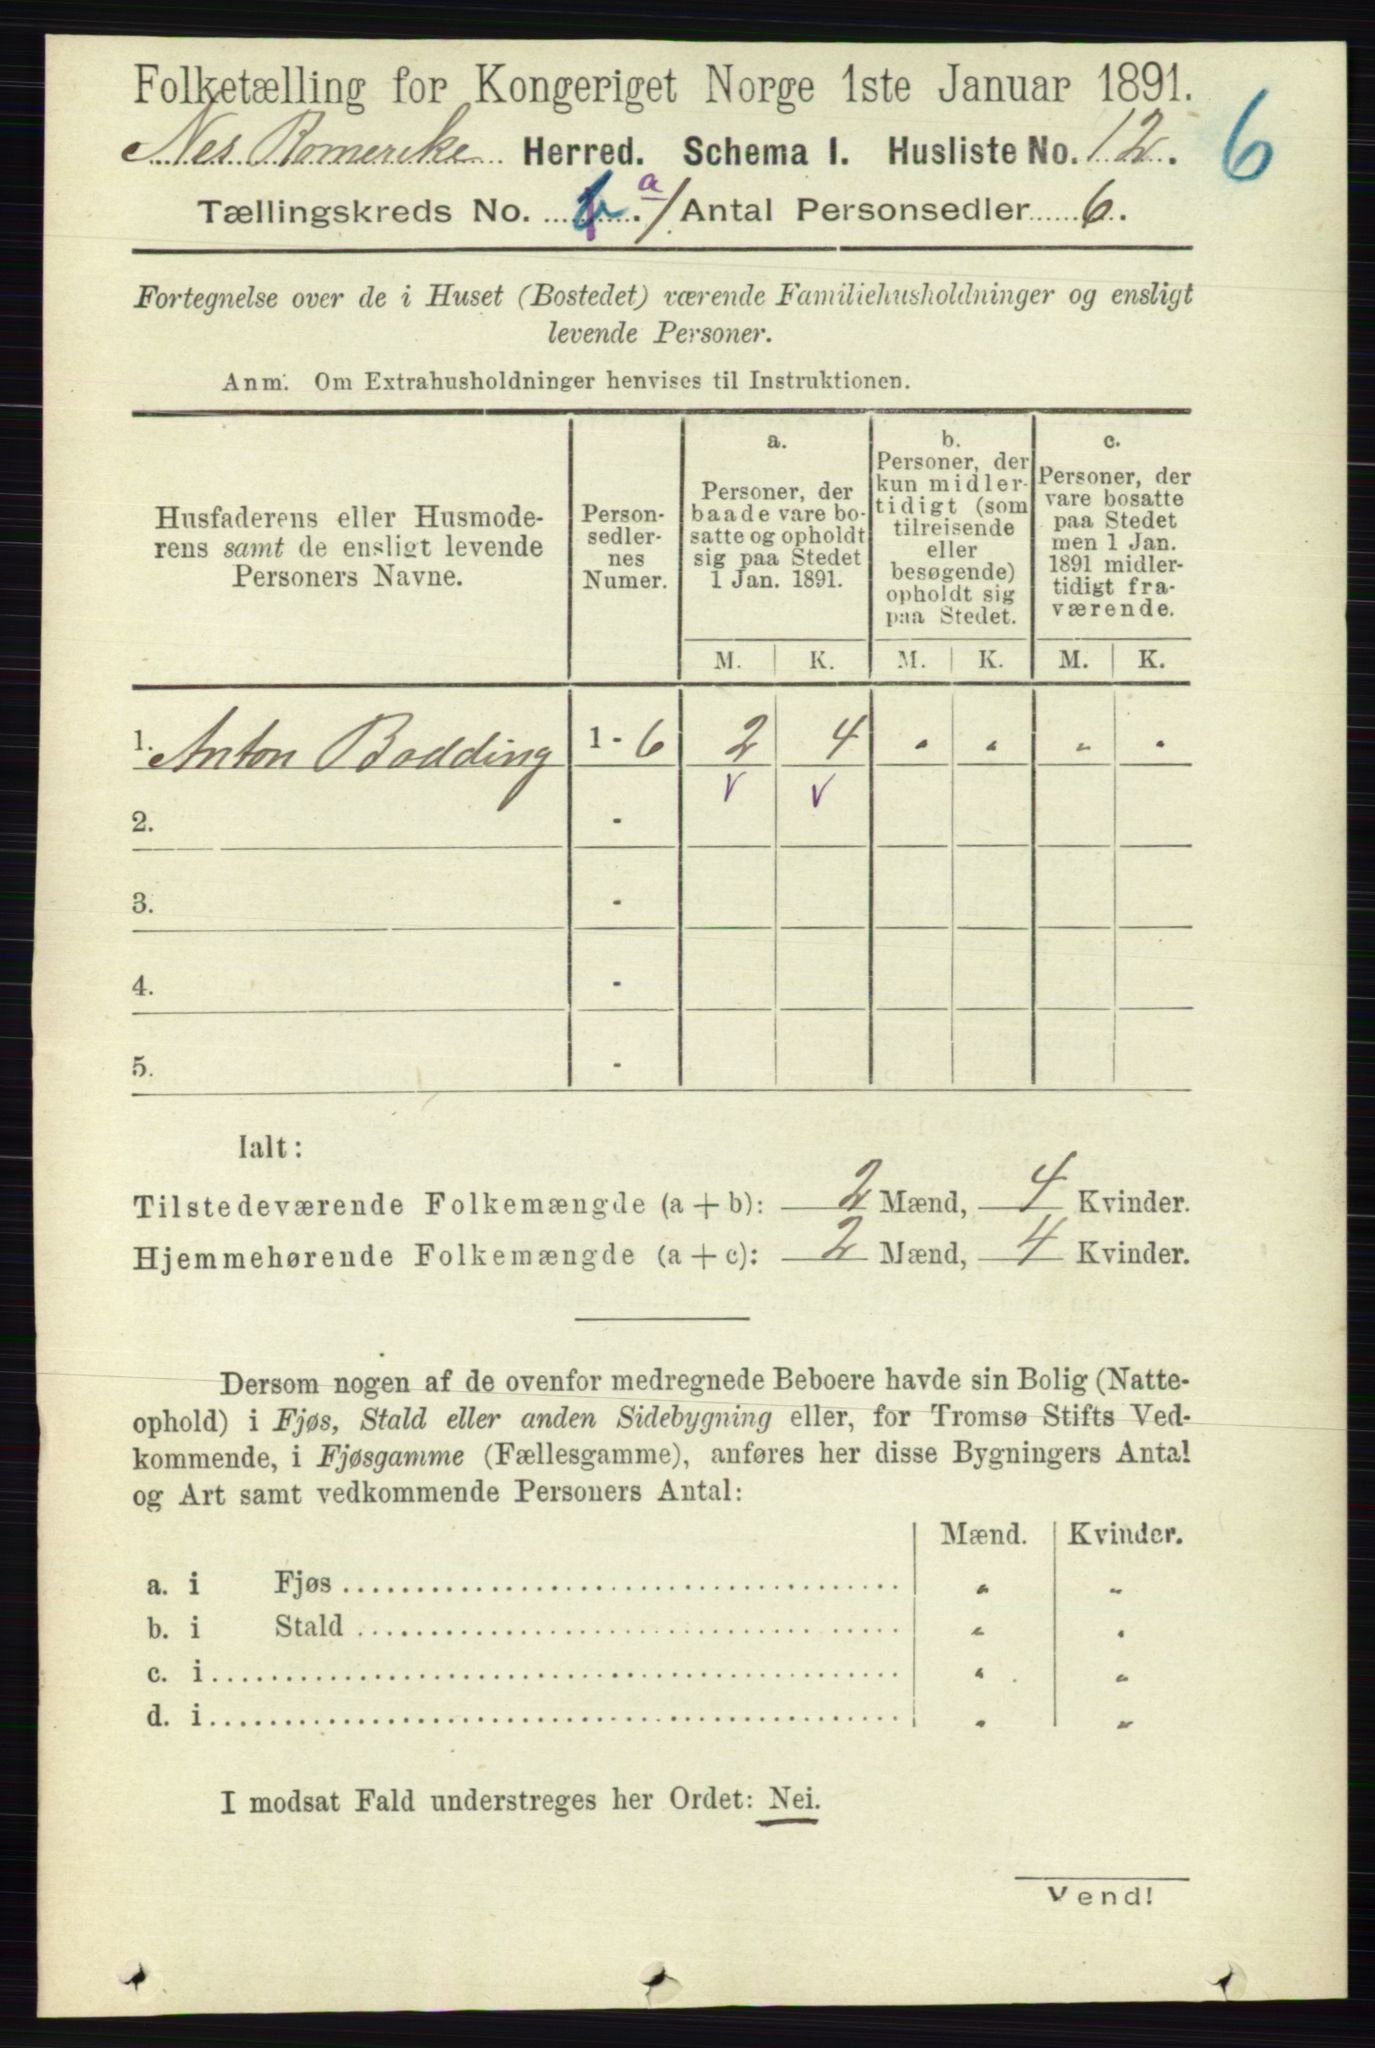 Folketælling for Kongeriget Norge 1ste Januar 1891.
6
Nes Romerike Herred. Schema I. Husliste No. 12.
Tællingskreds No. 6. a / Antal Personsedler 6.
Fortegnelse over de i Huset (Bostedet) værende Familiehusholdninger og ensligt
levende Personer.
Anm. Om Extrahusholdninger henvises til Instruktionen.
Husfaderens eller Husmode-
rens samt de ensligt levende
Personers Navne.
Person-
sedler-
nes
Numer.
a.
Personer, der
baade vare bo-
satte og opholdt
sig paa Stedet
1 Jan. 1891.
b.
Personer, der
kun midler-
tidigt (som
tilreisende
eller
besøgende)
opholdt sig
paa Stedet.
c.
Personer, der
vare bosatte
paa Stedet
men 1 Jan.
1891 midler-
tidigt fra-
værende.
M. K. M. K. M. K.
1. Anton Bodding 1 - 6 2 4 " " " "
v v
2. -
3. -
4. -
5. -
Ialt:
Tilstedeværende Folkemængde (a + b): 2 Mænd, 4 Kvinder.
Hjemmehørende Folkemængde (a + c): 2 Mænd, 4 Kvinder.
Dersom nogen af de ovenfor medregnede Beboere havde sin Bolig (Natte-
ophold) i Fjøs, Stald eller anden Sidebygning eller, for Tromsø Stifts Ved-
kommende, i Fjøsgamme (Fællesgamme), anføres her disse Bygningers Antal
og Art samt vedkommende Personers Antal:
Mænd. Kvinder.
a. i Fjøs " "
b. i Stald " "
c. i " "
d. i " "
I modsat Fald understreges her Ordet: Nei.
Vend!